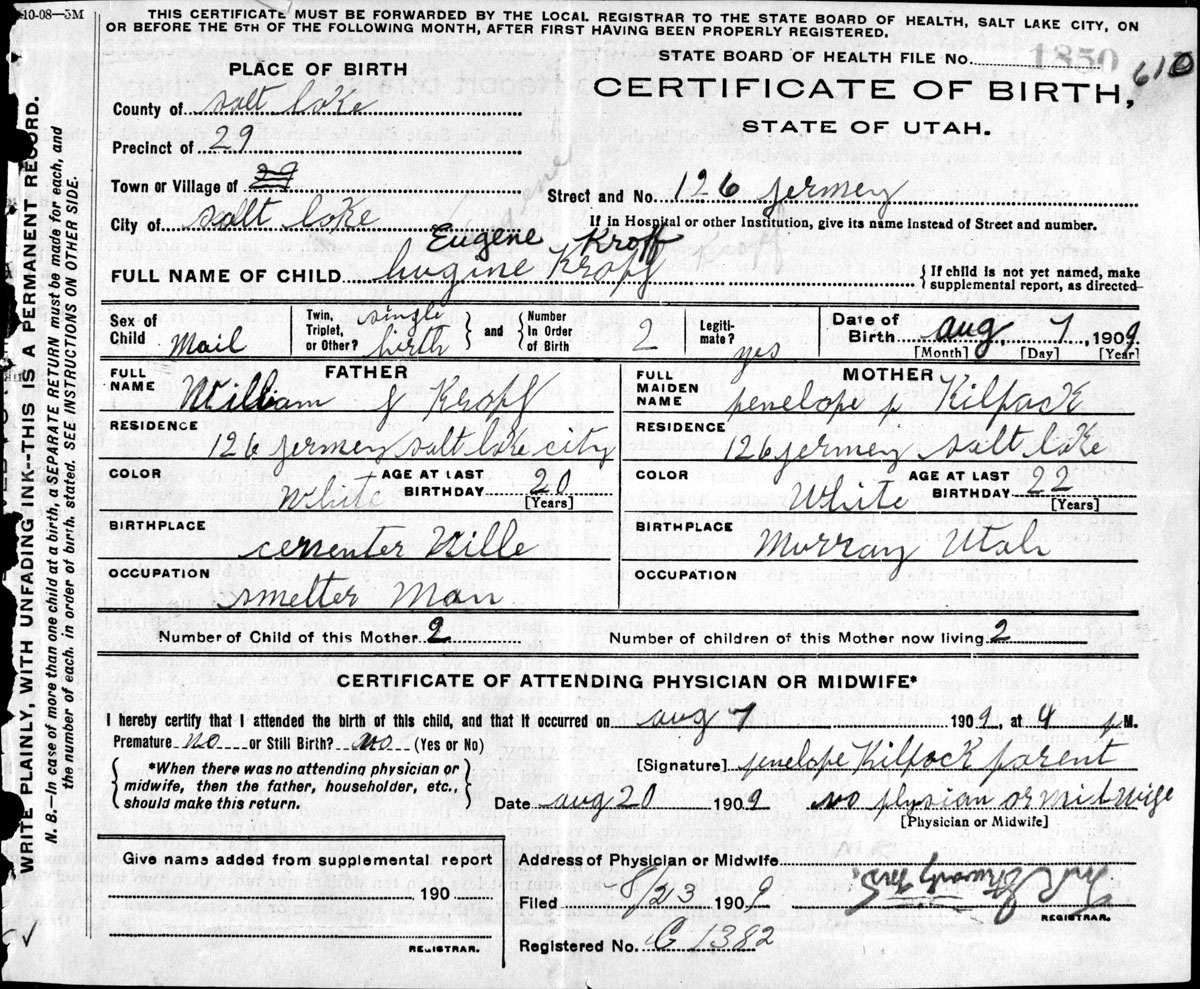 10-08—5M
THIS CERTIFICATE MUST BE FORWARDED BY THE LOCAL REGISTRAR TO THE STATE BOARD OF HEALTH, SALT LAKE CITY, ON
OR BEFORE THE 5TH OF THE FOLLOWING MONTH, AFTER FIRST HAVING BEEN PROPERLY REGISTERED.
STATE BOARD OF HEALTH FILE No. 1850
610
CERTIFICATE OF BIRTH,
STATE OF UTAH.
PLACE OF BIRTH
County of salt loke
Precinct of 29
Town or Village of 29
Street and No. 126 jermey
City of salt loke
If in Hospital or other Institution, give its name instead of Street and number.
Eugene Kroff
FULL NAME OF CHILD Eugine Kropf
If child is not yet named, make
supplemental report, as directed
Sex of Child Mail
Twin, Triplet, or Other? single birth
and
Number In Order of Birth 2
Legiti-mate? yes
Date of Birth aug, 7, 1909
[Month] [Day] [Year]
FATHER
FULL NAME William J Kropf
RESIDENCE
126 jermey salt lake city
COLOR White
AGE AT LAST BIRTHDAY 20
[Years]
BIRTHPLACE
cersenter Wille
OCCUPATION
smelter Man
MOTHER
FULL MAIDEN NAME penelope p Kilpack
RESIDENCE
126 jermey salt lake
COLOR White
AGE AT LAST BIRTHDAY 22
[Years]
BIRTHPLACE
Murray Utah
OCCUPATION
Number of Child of this Mother 2
Number of children of this Mother now living 2
CERTIFICATE OF ATTENDING PHYSICIAN OR MIDWIFE*
I hereby certify that I attended the birth of this child, and that it occurred on aug 7 1909, at 4 p M.
Premature no or Still Birth? no (Yes or No)
*When there was no attending physician or
midwife, then the father, householder, etc.,
should make this return.
[Signature] penelope Kilpack parent
Date aug 20 1909 no physian or midwige
[Physician or Midwife]
Give name added from supplemental report
190
REGISTRAR.
Address of Physician or Midwife
Filed 8/23 1909
REGISTRAR.
Registered No. C 1382
WRITE PLAINLY, WITH UNFADING INK--THIS IS A PERMANENT RECORD.
N. B.—In case of more than one child at a birth, a SEPARATE RETURN must be made for each, and
the number of each, in order of birth, stated. SEE INSTRUCTIONS ON OTHER SIDE.